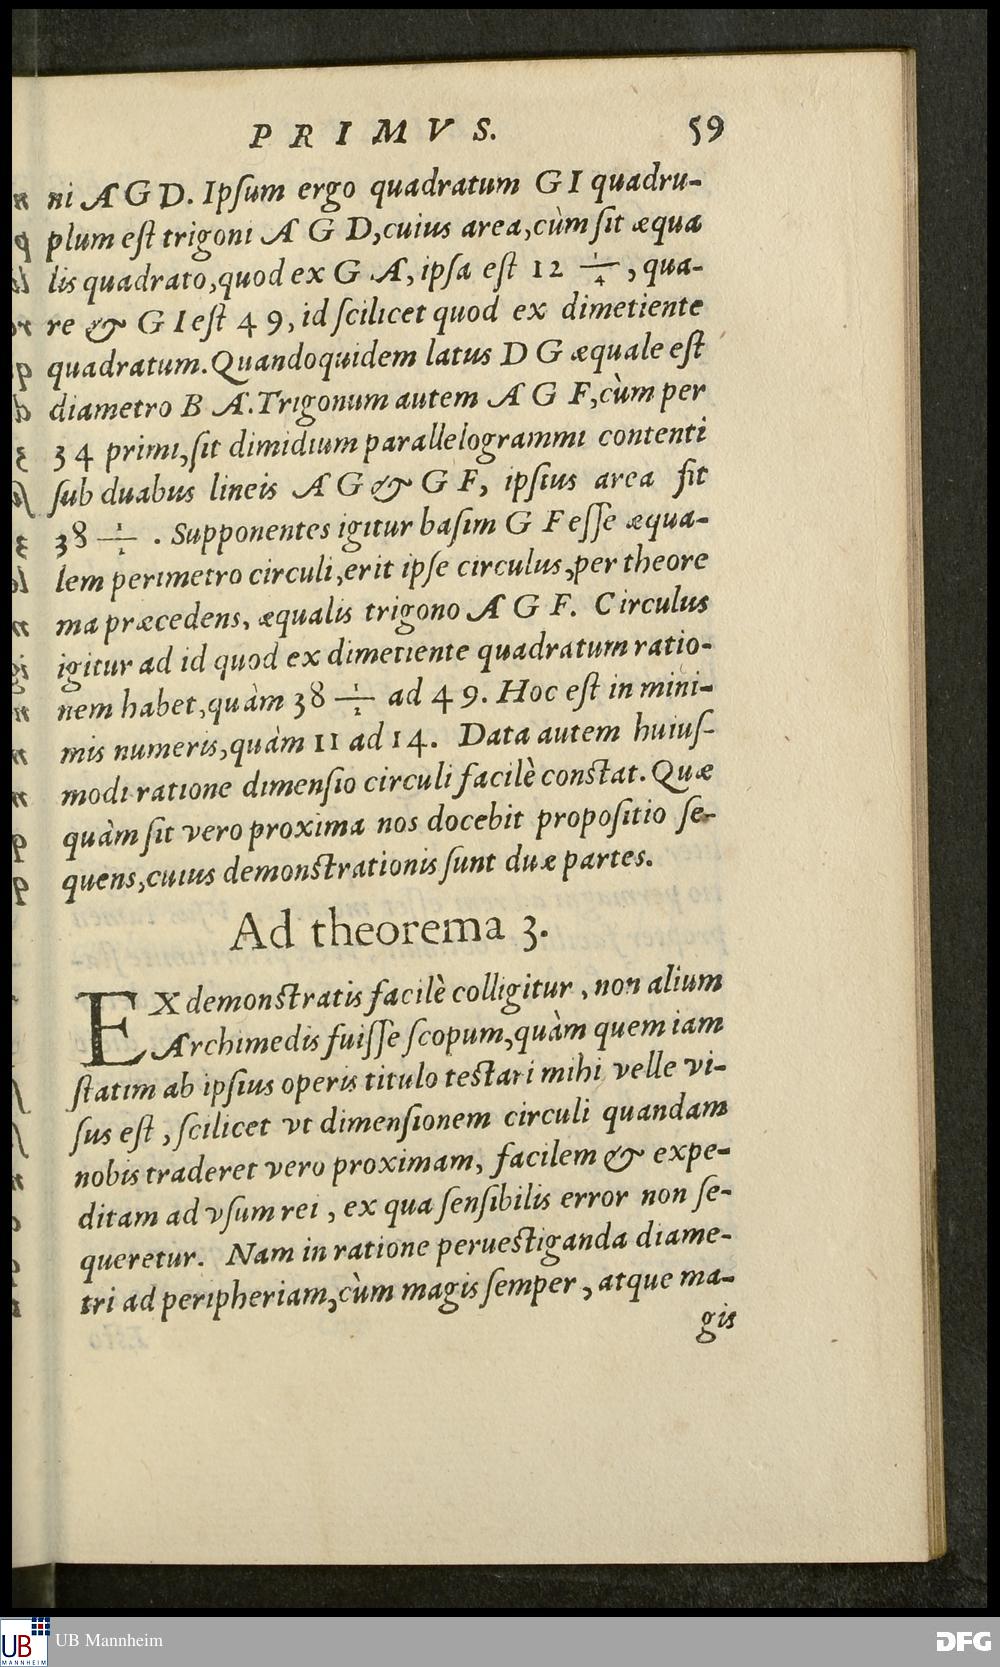 PRIMVS. 59
ni A G D. Ipſum ergo quadratum G I quadru-
plum eſt trigoni A G D, cuius area, cùm ſit æqua
lis quadrato, quod ex G A, ipſa eſt 12 1/4, qua-
re & G I eſt 49, id ſcilicet quod ex dimetiente
quadratum. Quandoquidem latus D G æquale eſt
diametro B A. Trigonum autem A G F, cùm per
34 primi, ſit dimidium parallelogrammi contenti
ſub duabus lineis A G & G F, ipſius area fit
38 1/2. Supponentes igitur baſim G F eſſe æqua-
lem perimetro circuli, erit ipſe circulus, per theore
ma præcedens, æqualis trigono A G F. Circulus
igitur ad id quod ex dimetiente quadratum ratio-
nem habet, quàm 38 1/2 ad 49. Hoc eſt in mini-
mis numeris, quàm 11 ad 14. Data autem huiuſ-
modi ratione dimenſio circuli facilè conſtat. Quæ
quàm ſit vero proxima nos docebit propoſitio ſe-
quens, cuius demonſtrationis ſunt duæ partes.
Ad theorema 3.
EX demonſtratis facilè colligitur, non alium
Archimedis fuiſſe ſcopum, quàm quem iam
ſtatim ab ipſius operis titulo teſtari mihi velle vi-
ſus eſt, ſcilicet vt dimenſionem circuli quandam
nobis traderet vero proximam, facilem & expe-
ditam ad vſum rei, ex qua ſenſibilis error non ſe-
queretur. Nam in ratione perueſtiganda diame-
tri ad peripheriam, cùm magis ſemper, atque ma-
gis
UB Mannheim
UB
MANNHEIM
DFG